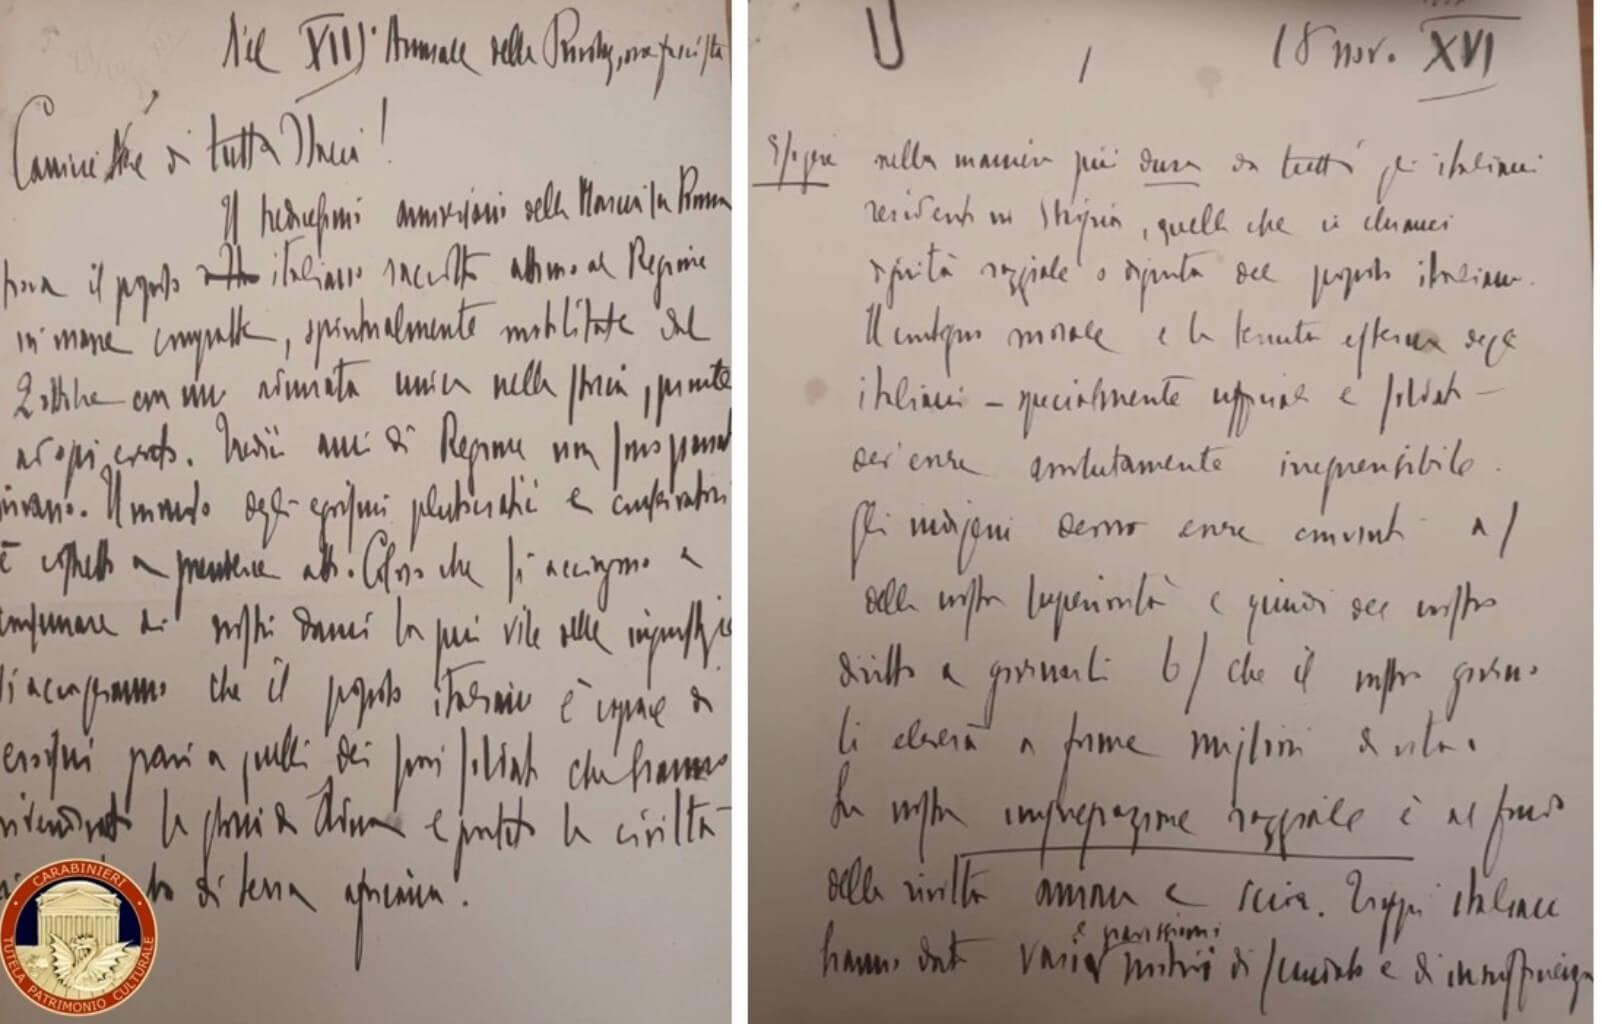 Nel XIII° Annuale della Rivoluz. ora fascista
Camicie Nere di tutta Italia!
Il tredicesimo anniversario della Marcia su Roma
trova il popolo italiano raccolto attorno al Regime
in masse compatte, spiritualmente mobilitate dal
2 ottobre con una adunata unica nella storia, pronte
ad ogni evento. Tredici anni di Regime non sono passati
invano. Il mondo degli egoismi plutocratici e conservatori
è costretto a prenderne atto. Coloro che si accingono a
consumare ai nostri danni la più vile delle ingiustizie
s'accorgeranno che il popolo italiano è capace di
eroismi pari a quelli dei suoi soldati che hanno
rivendicato la gloria di Adua e portato la civiltà
di terra africana.
CARABINIERI
TUTELA PATRIMONIO CULTURALE
1
18 nov. XVI
Esigere nella maniera più dura da tutti gli italiani
residenti in Etiopia, quella che si chiama
dignità razziale o dignità del popolo italiano.
Il contegno morale e la tenuta esterna degli
italiani - specialmente ufficiali e soldati -
dev'essere assolutamente irreprensibile.
Gli indigeni devono essere convinti a/
della nostra superiorità e quindi del nostro
diritto a governarli b/ che il nostro governo
li eleverà a forme migliori di vita.
La nostra impreparazione razziale è al fondo
della rivolta amara e scioa. Troppi italiani
hanno dato vari e gravissimi motivi di scandalo e di insufficienza